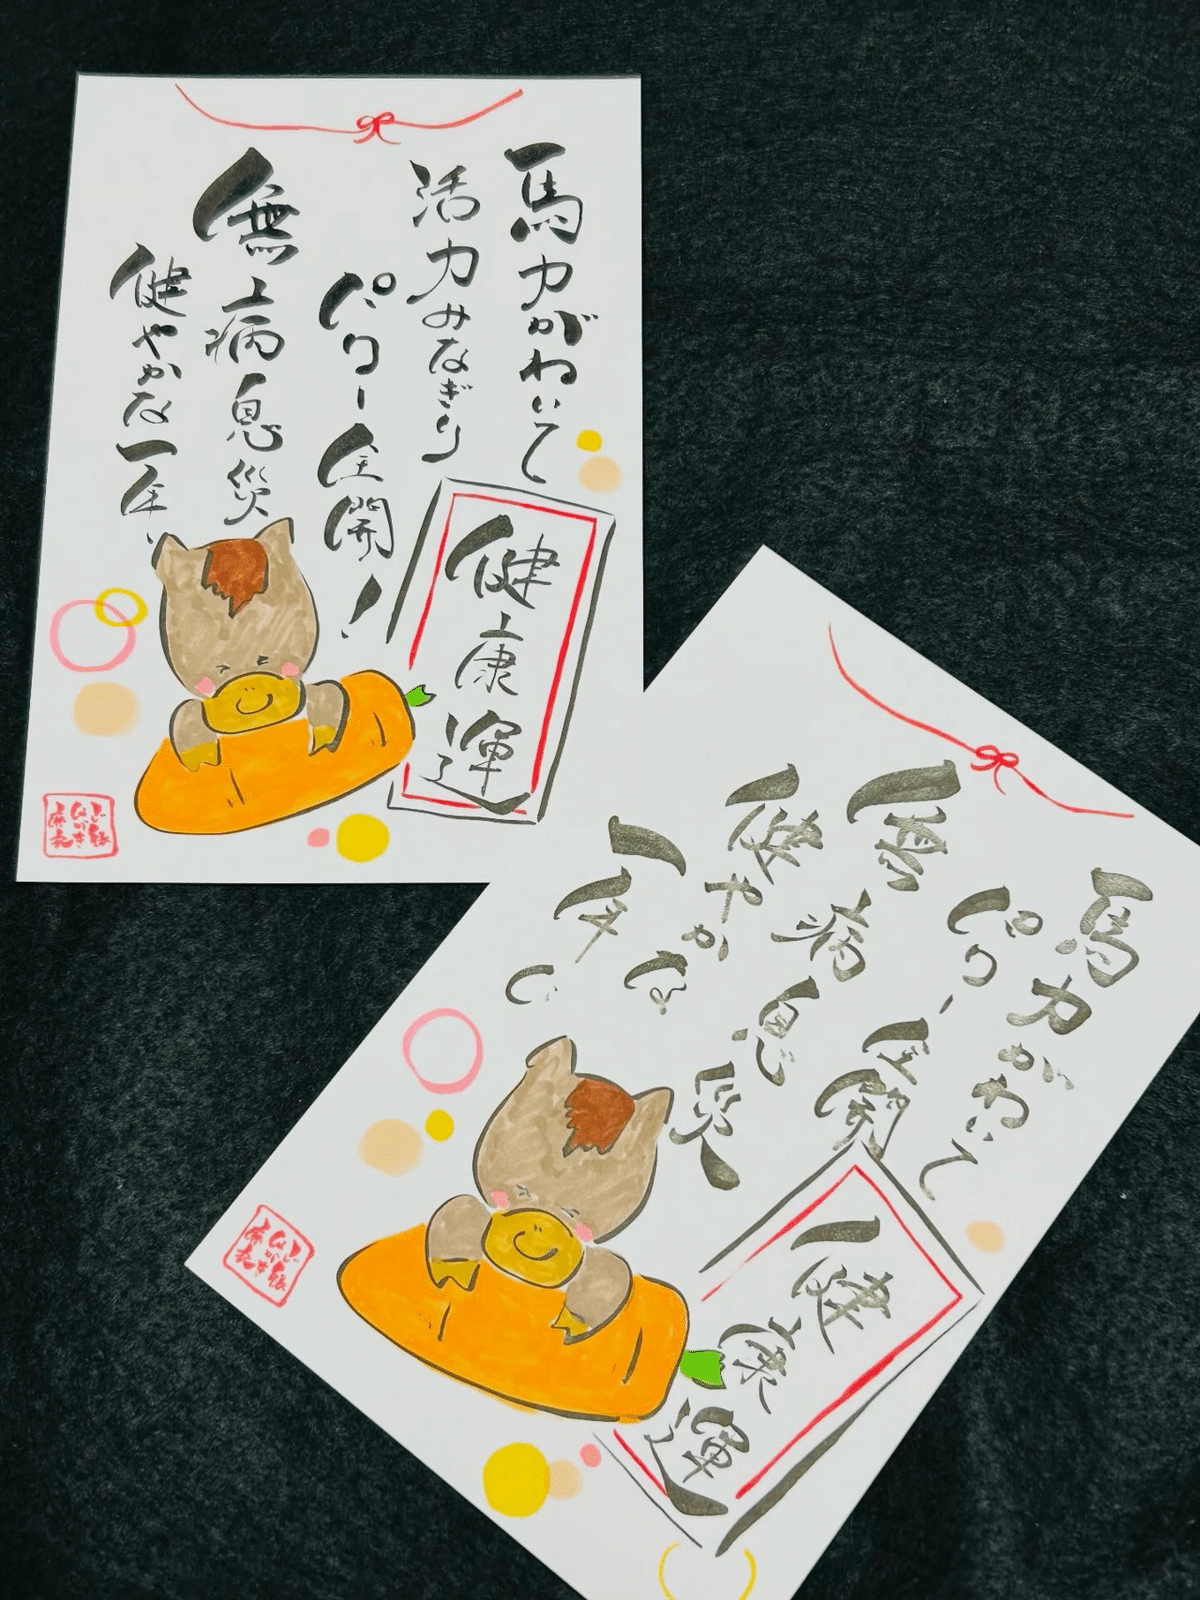 馬力がわいて
活力みなぎり
パワー全開!
無病息災
健やかな一年に
健康運
馬力がわいて
パワー全開
無病息災
健やかな
一年に
健康運